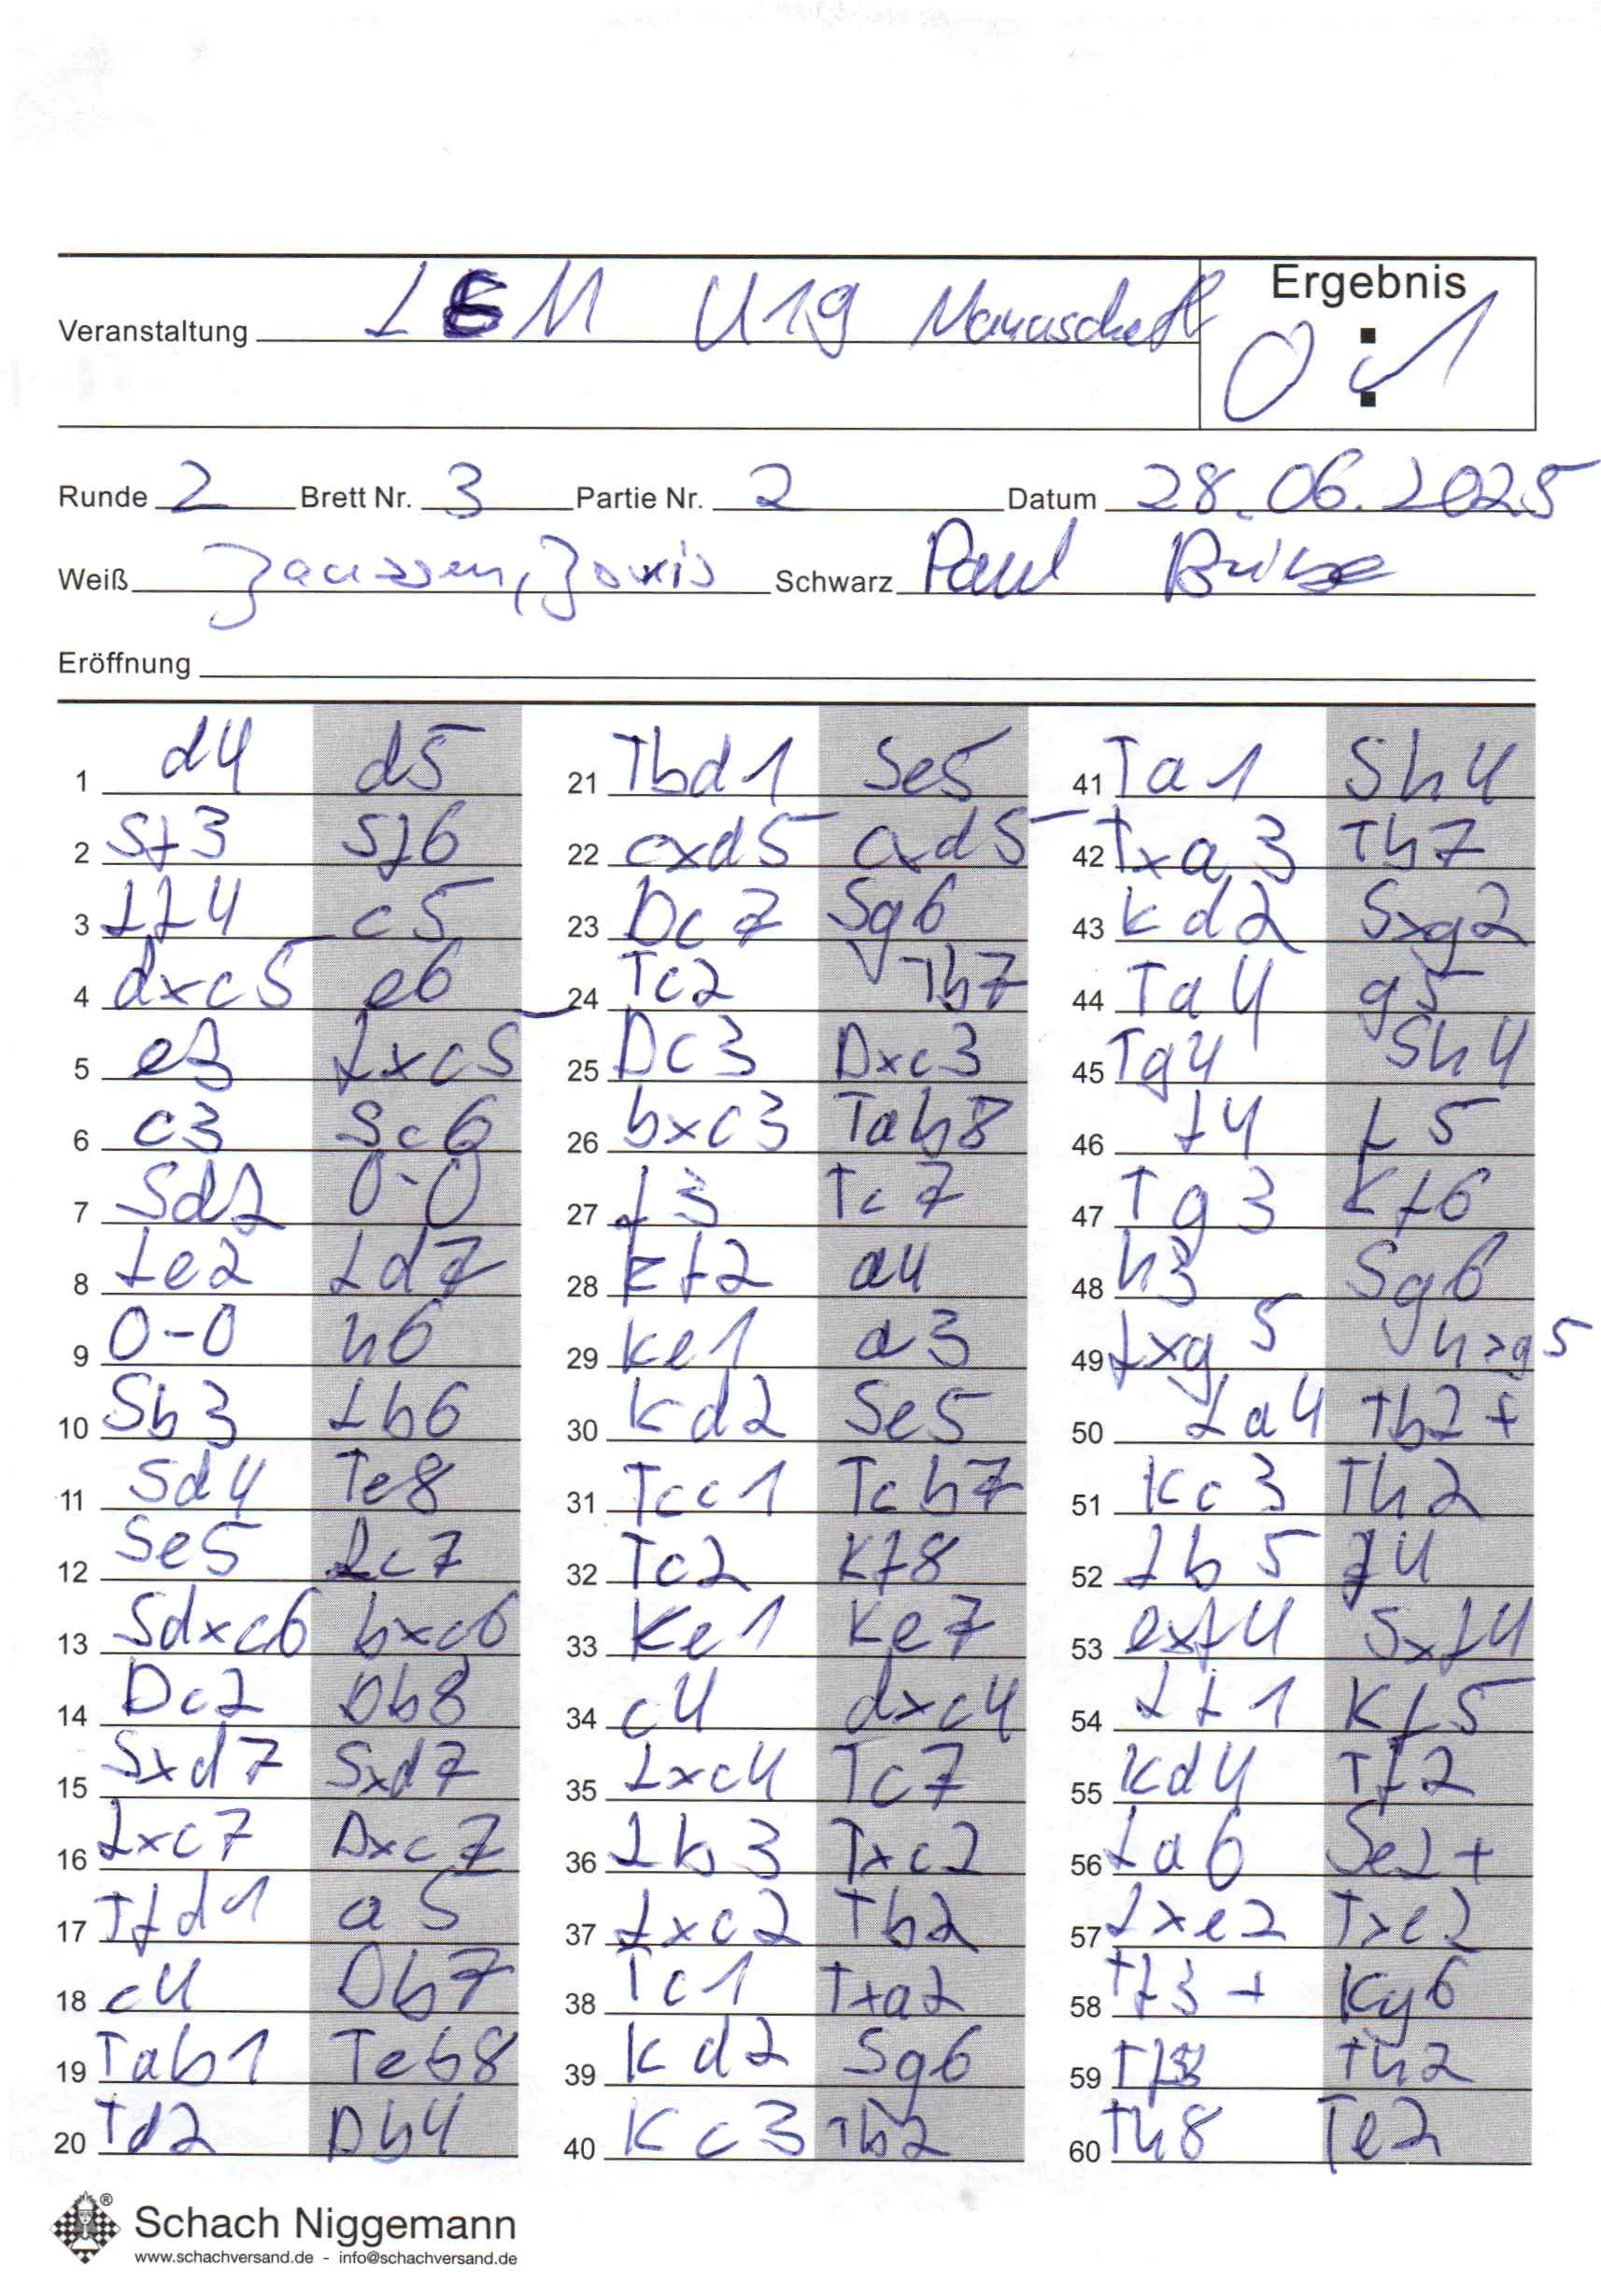 Ergebnis
Veranstaltung LEM U19 Mannschaft
0 : 1
Runde 2 Brett Nr. 3 Partie Nr. 2 Datum 28.06.2025
Weiß Janssen, Joris Schwarz Paul
Eröffnung
1 d4 d5 21 Tbd1 Se5 41 Ta1 Sh4
2 Sf3 Sf6 22 cxd5 cxd5 42 Txa3 Th7
3 Lf4 c5 23 Dc7 Sg6 43 Kd2 Sxg2
4 dxc5 e6 24 Tc2 Tb7 44 Ta4 g5
5 e3 Lxc5 25 Dc3 Dxc3 45 Tg4 Sh4
6 c3 Sc6 26 bxc3 Tab8 46 f4 f5
7 Sd2 0-0 27 f3 Tc7 47 Tg3 Kf6
8 Le2 Ld7 28 Kf2 a4 48 h3 Sg6
9 0-0 h6 29 Ke1 a3 49 Lxg5 hxg5
10 Sb3 Lb6 30 Kd2 Se5 50 La4 Tb2+
11 Sd4 Te8 31 Tcc1 Tcb7 51 Kc3 Th2
12 Se5 Lc7 32 Tc2 Kf8 52 Lb5 f4
13 Sdxc6 bxc6 33 Ke1 Ke7 53 exf4 Sxf4
14 Dc2 Db8 34 c4 dxc4 54 Lf1 Kf5
15 Sxd7 Sxd7 35 Lxc4 Tc7 55 Kd4 Tf2
16 Lxc7 Dxc7 36 Lb3 Txc2 56 La6 Se2+
17 Tfd1 a5 37 Lxc2 Tb2 57 Lxe2 Txe2
18 c4 Db7 38 Tc1 Txa2 58 Tf3+ Kg6
19 Tab1 Teb8 39 Kd2 Sg6 59 Tf8 Th2
20 Td2 Db4 40 Kc3 Tb2 60 Th8 Te2
Schach Niggemann
www.schachversand.de - info@schachversand.de